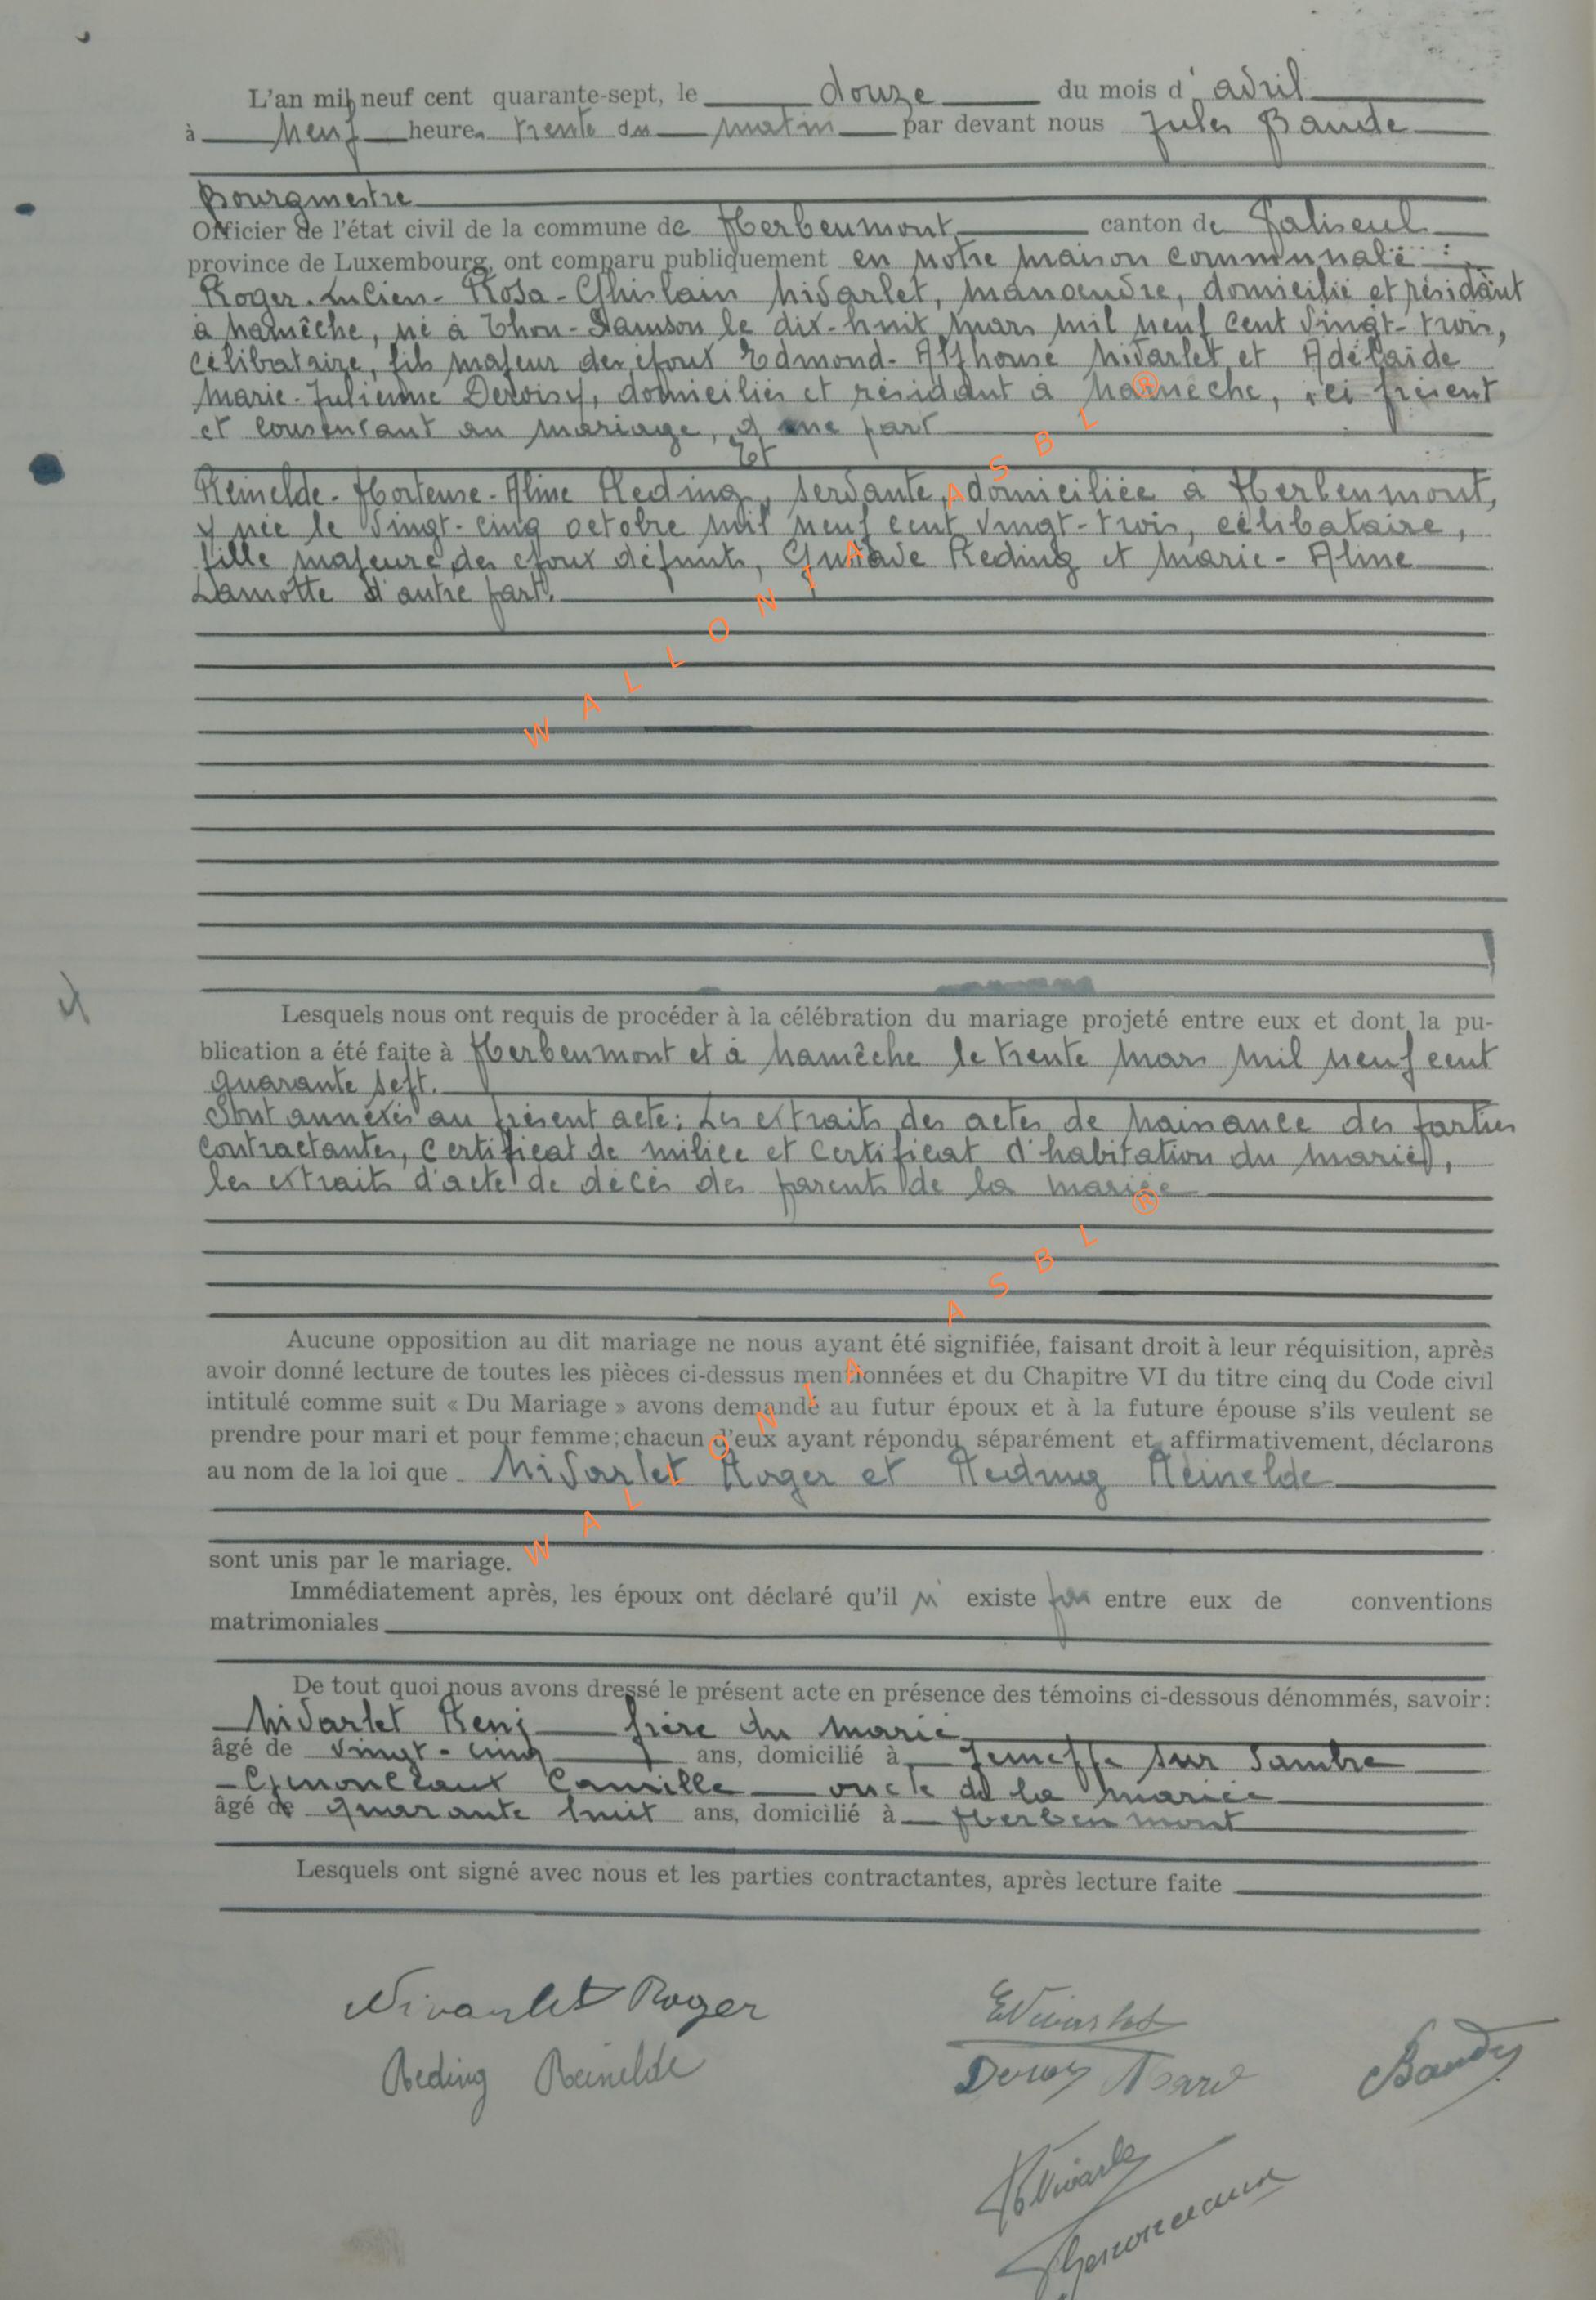 L'an mil neuf cent quarante-sept, le douze du mois d'avril
à neuf heures trente du matin par devant nous Jules Baude
Bourgmestre
Officier de l'état civil de la commune de Herbeumont canton de Paliseul
province de Luxembourg, ont comparu publiquement en notre maison communale :
Roger-Lucien-Rosa-Ghislain Nivarlet, manoeuvre, domicilié et résidant
à Namêche, né à Thon-Samson le dix-huit mars mil neuf cent vingt-trois,
célibataire, fils majeur des époux Edmond-Alphonse Nivarlet et Adélaïde
Marie-Julienne Deroisy, domiciliés et résidant à Namêche, ici présent
et consentant au mariage, d'une part
Et
Reinelde-Hortense-Aline Reding, servante, domiciliée à Herbeumont,
y née le vingt-cinq octobre mil neuf cent vingt-trois, célibataire,
fille majeure des époux défunts, Gustave Reding et Marie-Aline
Lamotte d'autre part.
Lesquels nous ont requis de procéder à la célébration du mariage projeté entre eux et dont la pu-
blication a été faite à Herbeumont et à Namêche le trente mars mil neuf cent
quarante sept.
Sont annexés au présent acte : Les extraits des actes de naissance des parties
contractantes, certificat de milice et certificat d'habitation du marié,
les extraits d'acte de décès des parents de la mariée
Aucune opposition au dit mariage ne nous ayant été signifiée, faisant droit à leur réquisition, après
avoir donné lecture de toutes les pièces ci-dessus mentionnées et du Chapitre VI du titre cinq du Code civil
intitulé comme suit « Du Mariage » avons demandé au futur époux et à la future épouse s'ils veulent se
prendre pour mari et pour femme; chacun d'eux ayant répondu séparément et affirmativement, déclarons
au nom de la loi que Nivarlet Roger et Reding Reinelde
sont unis par le mariage.
Immédiatement après, les époux ont déclaré qu'il n'existe pas entre eux de conventions
matrimoniales
De tout quoi nous avons dressé le présent acte en présence des témoins ci-dessous dénommés, savoir :
Nivarlet René frère du marié
âgé de vingt-cinq ans, domicilié à Jemeppe sur Sambre
Camille oncle de la mariée
âgé de quarante huit ans, domicilié à Herbeumont
Lesquels ont signé avec nous et les parties contractantes, après lecture faite
Nivarlet Roger
Reding Reinelde
ENivarlet
Baude
WALLONIA ASBL ®
WALLONIA ASBL ®